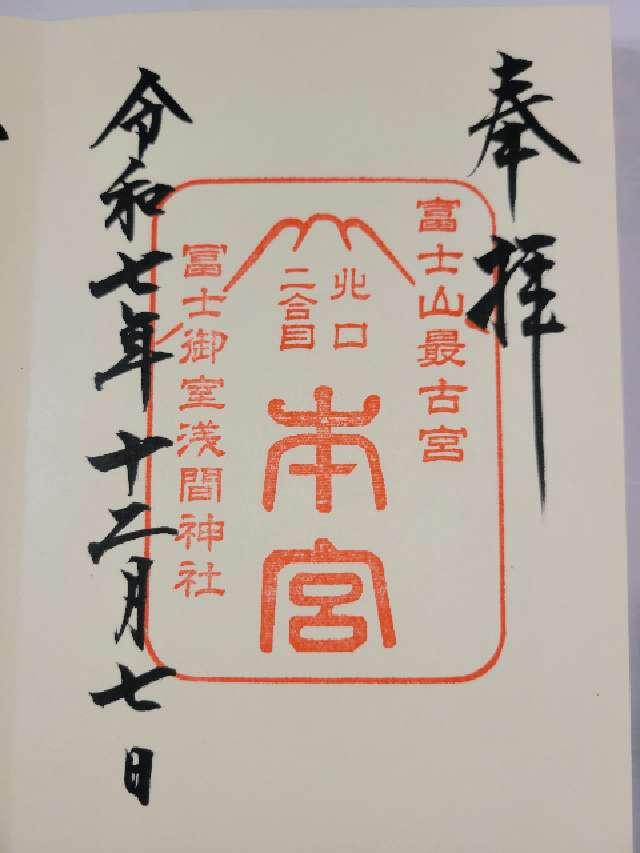 奉拝
富士山最古宮
北口
二合目
本宮
冨士御室浅間神社
令和七年十二月七日